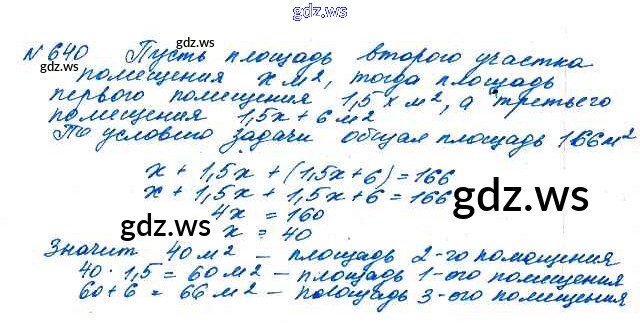 gdz.ws
№ 640 Пусть площадь второго участка
gdz.ws gdz.ws
помещения x м², тогда площадь
первого помещения 1,5x м², а третьего
помещения 1,5x + 6 м²
По условию задачи общая площадь 166 м²
x + 1,5x + (1,5x + 6) = 166
x + 1,5x + 1,5x + 6 = 166
gdz.ws
4x = 160
gdz.ws
x = 40
Значит 40 м² – площадь 2-го помещения
40 · 1,5 = 60 м² – площадь 1-ого помещения
60 + 6 = 66 м² – площадь 3-ого помещения
gdz.ws gdz.ws